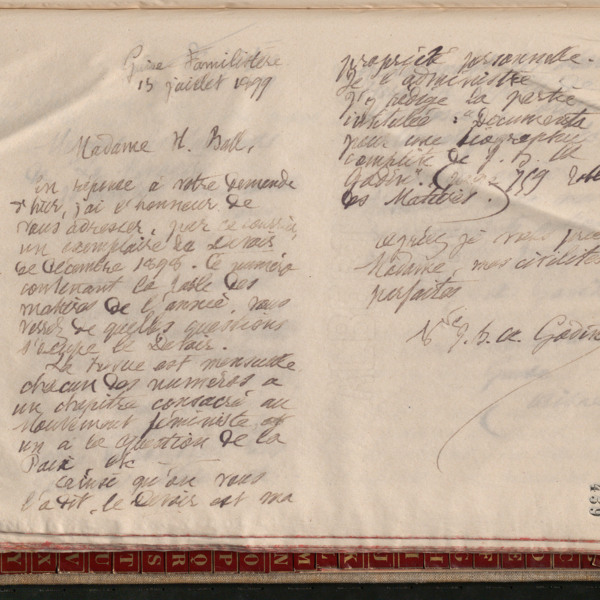 Guise Familistère
15 juillet 1899
Madame H. Ball,
En réponse à votre demande
d'hier, j'ai l'honneur de
vous adresser, par ce courrier,
un exemplaire du Devoir
de décembre 1898. Ce numéro
contenant la table des
matières de l'année, vous
verrez de quelles questions
s'occupe le Devoir.
La revue est mensuelle
chacun des numéros a
un chapitre consacré au
Mouvement féministe, et
un à la question de la
Paix etc
Ainsi qu'on vous
l'a dit, le Devoir est ma
propriété personnelle.
Je l'administre
J'y rédige la partie
intitulée : "Documents
pour une biographie
complète de J. B. A.
Godin". (page 759 Table
des Matières.)
Agréez je vous prie
Madame, mes civilités
parfaites
Vve J. B. A. Godin
439
X V U T S R Q P O N M L K J I